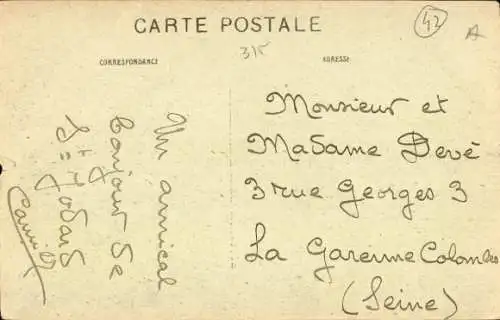 CARTE POSTALE
42
A
315
CORRESPONDANCE
ADRESSE
Un amical
bonjour de
St Jodard
Monsieur et
Madame Devé
3 rue Georges 3
La Garenne Colombes
(Seine)